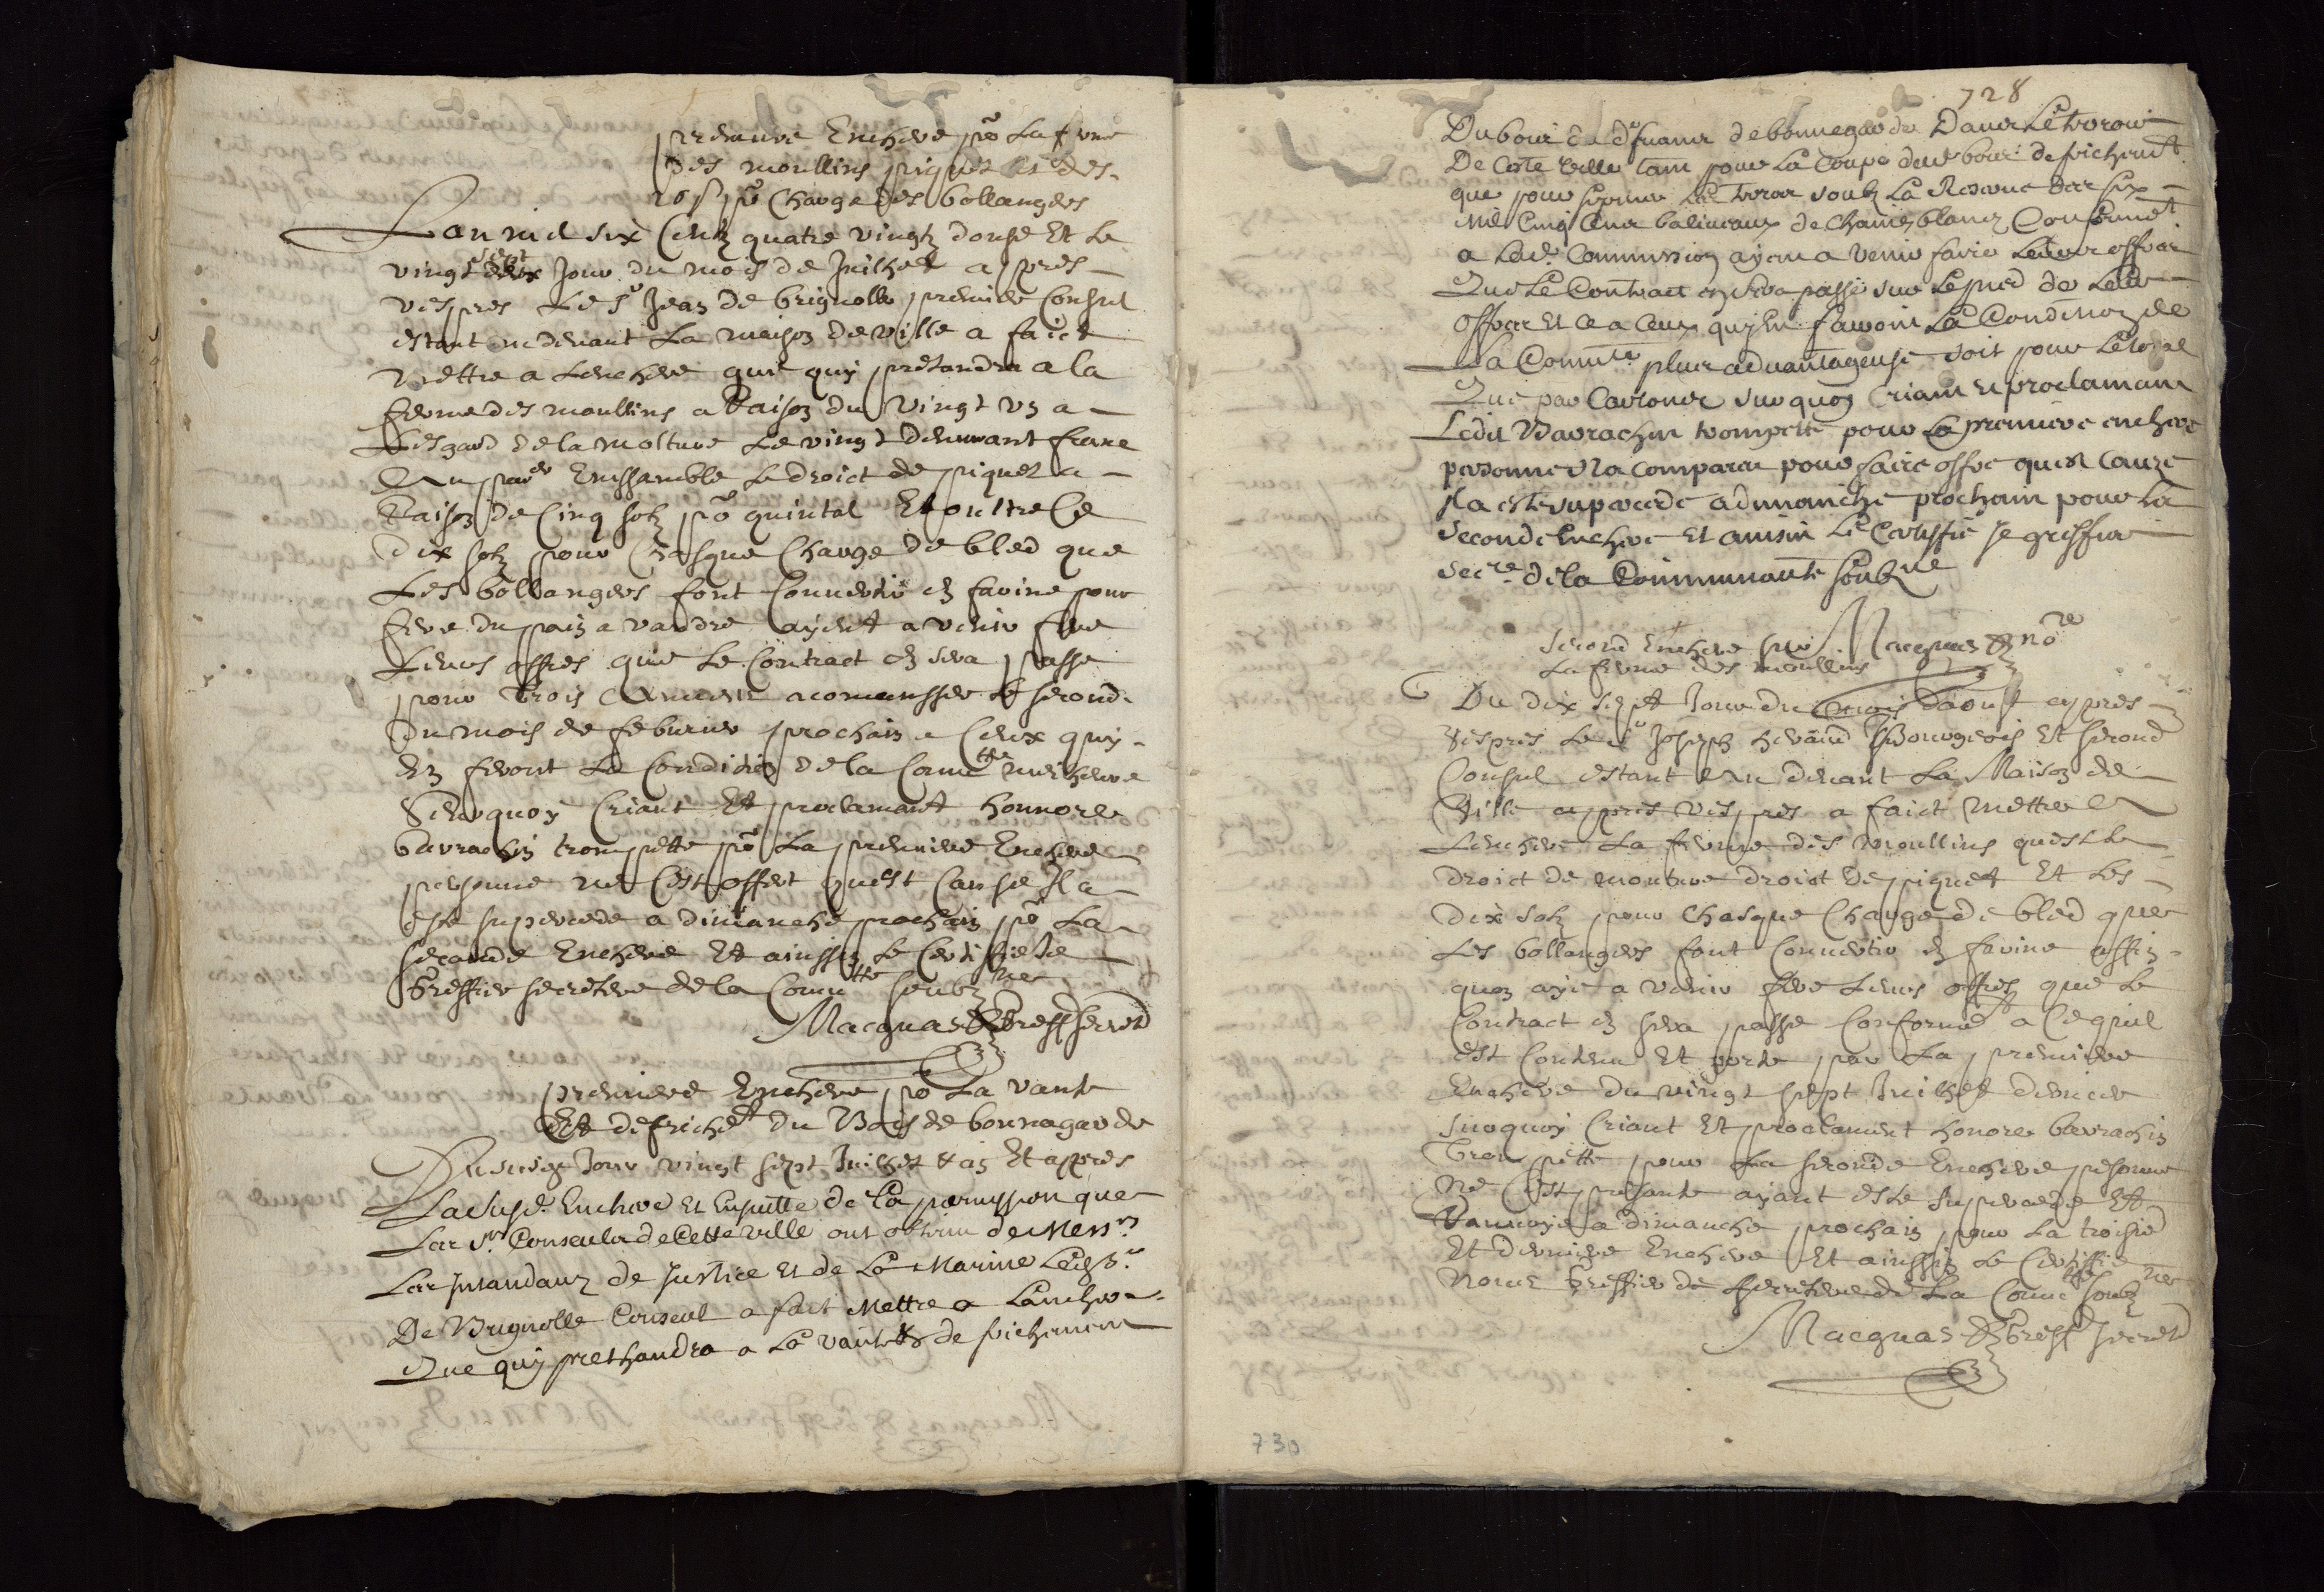 premiere Enchere po La ferme
des moullins piquet et des
10 s po Charge des bollangers
Lan mil six Centz quatre vingtz douse Et Le
vingt sept Jour du mois de Juilhet appres
vespres Le Sr Jean de brignolle premier Consul
estant au devant La maison de ville a faict
mettre a Lenchere que quy pretandra a la
ferme des moullins a Raison du vingt un a
Lesgard de la molture Le vingt demurant franc
Enssamble Le droict de piquet a
Raison de Cinq solz po quintal Et oultre Ce
dix solz pour Chasque Charge de bled que
Les bollangers font Convertir en farine pour
fere du pain a vandre ayent a venir fere
Leurs offres que Le Contract en sera passe
pour trois annees a comensser Le second
du mois de febvrier prochain a Ceux quy
En feront La Condition de la Comutte meilheure
Surquoy Criant Et proclamant honnore
bavrachin trompette po La premiere Enchere
personne ne Cest offert quest Cause Il a
este superçede a dimanche prochain po La
seconde Enchere Et ainssin Le Certiffie Je
Greffier secretere de la Comutte soubz ne
Macquas Greff secretd
premiere Enchere po La vante
Et defrichet du Bois de bonnegarde
Du susd Jour vingt sept Juilhet & an Et appres
La susd. Enchere Et Ensuitte de La permission que
Les Srs Conseuls de Cette ville ont obtenu de Messrs
Les Intandanz de Justice Et de La Marine Led Sr
De Brignolle Conseul a fait Mettre a Lanchere
Que quy prethandra a La vante & de frichement
728
Du bois de bonnegarde Dans Le terroir
De Cete ville tant pour La Coupe dud bois defrichemt
que pour La Reserve des six
mil Cinq Cens balivaux de Chaines blancz Conformet
a Lad. Commission ayent a venir faire Leurs offres
Que Le Contract en sera passé sur Le pied de Leur
offres Et Ce a Ceux quy En fairont La Condition de
La Comute plus advantageuse soit pour Le total
Que par Cartoner Surquoy Criant Et proclamant
Ledit Bavrachin trompette pour La premiere enchere
personne na Comparu pour faire offre quest Cauze
Il a este superçede a dimanche prochain pour La
seconde Enchere Et ainsin Le Certiffie Je greffier
Secre de la Communaute soubzne
Macquas nore
Second Enchere sur
La ferme des moullins
Du dix sept Jour du mois daoust appres
vespres Le Sr Joseph Bourgeois Et second
Consul estant au devant La Maison de
Ville appres vespres a faict mettre a
Lenchere La ferme des moullins quest Le
droict de mouture droict de piquet Et Les
dix solz pour Chasque Charge de bled que
Les bollangers font Convertir en farine affin
quon aye a venir fere Leurs offres que Le
Contract en sera passe Conformet a Ce quil
est Contenu Et porte par La premiere
Enchere du vingt sept Juilhet dernier
surquoy Criant Et proclament honore bavrachin
Trompette pour La seconde Enchere personne
ne Cest presante ayant este superçede Et
Ranvoye a dimanche prochain pour La troisie
Et derniere Enchere Et ainssin Le Certiffie
nous Greffier & secretere de La Comutte soubz ne
Macquas Greff secretd
730